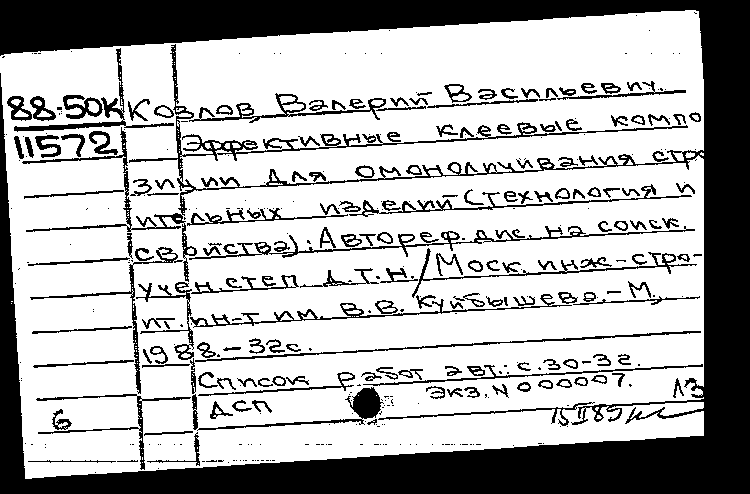 88-50К Козлов, Валерий Васильевич.
11572 Эффективные клеевые компо
зиции для омоноличивания стро
ительных изделий (технология и
свойства): Автореф. дис. на соиск.
учен. степ. д.т.н. / Моск. инж.-стро-
ит. ин-т им. В.В. Куйбышева. - М.,
1988. - 32с.
Список работ авт.: с. 30-32.
ДСП экз. N 000007. 13
6 15 II 89